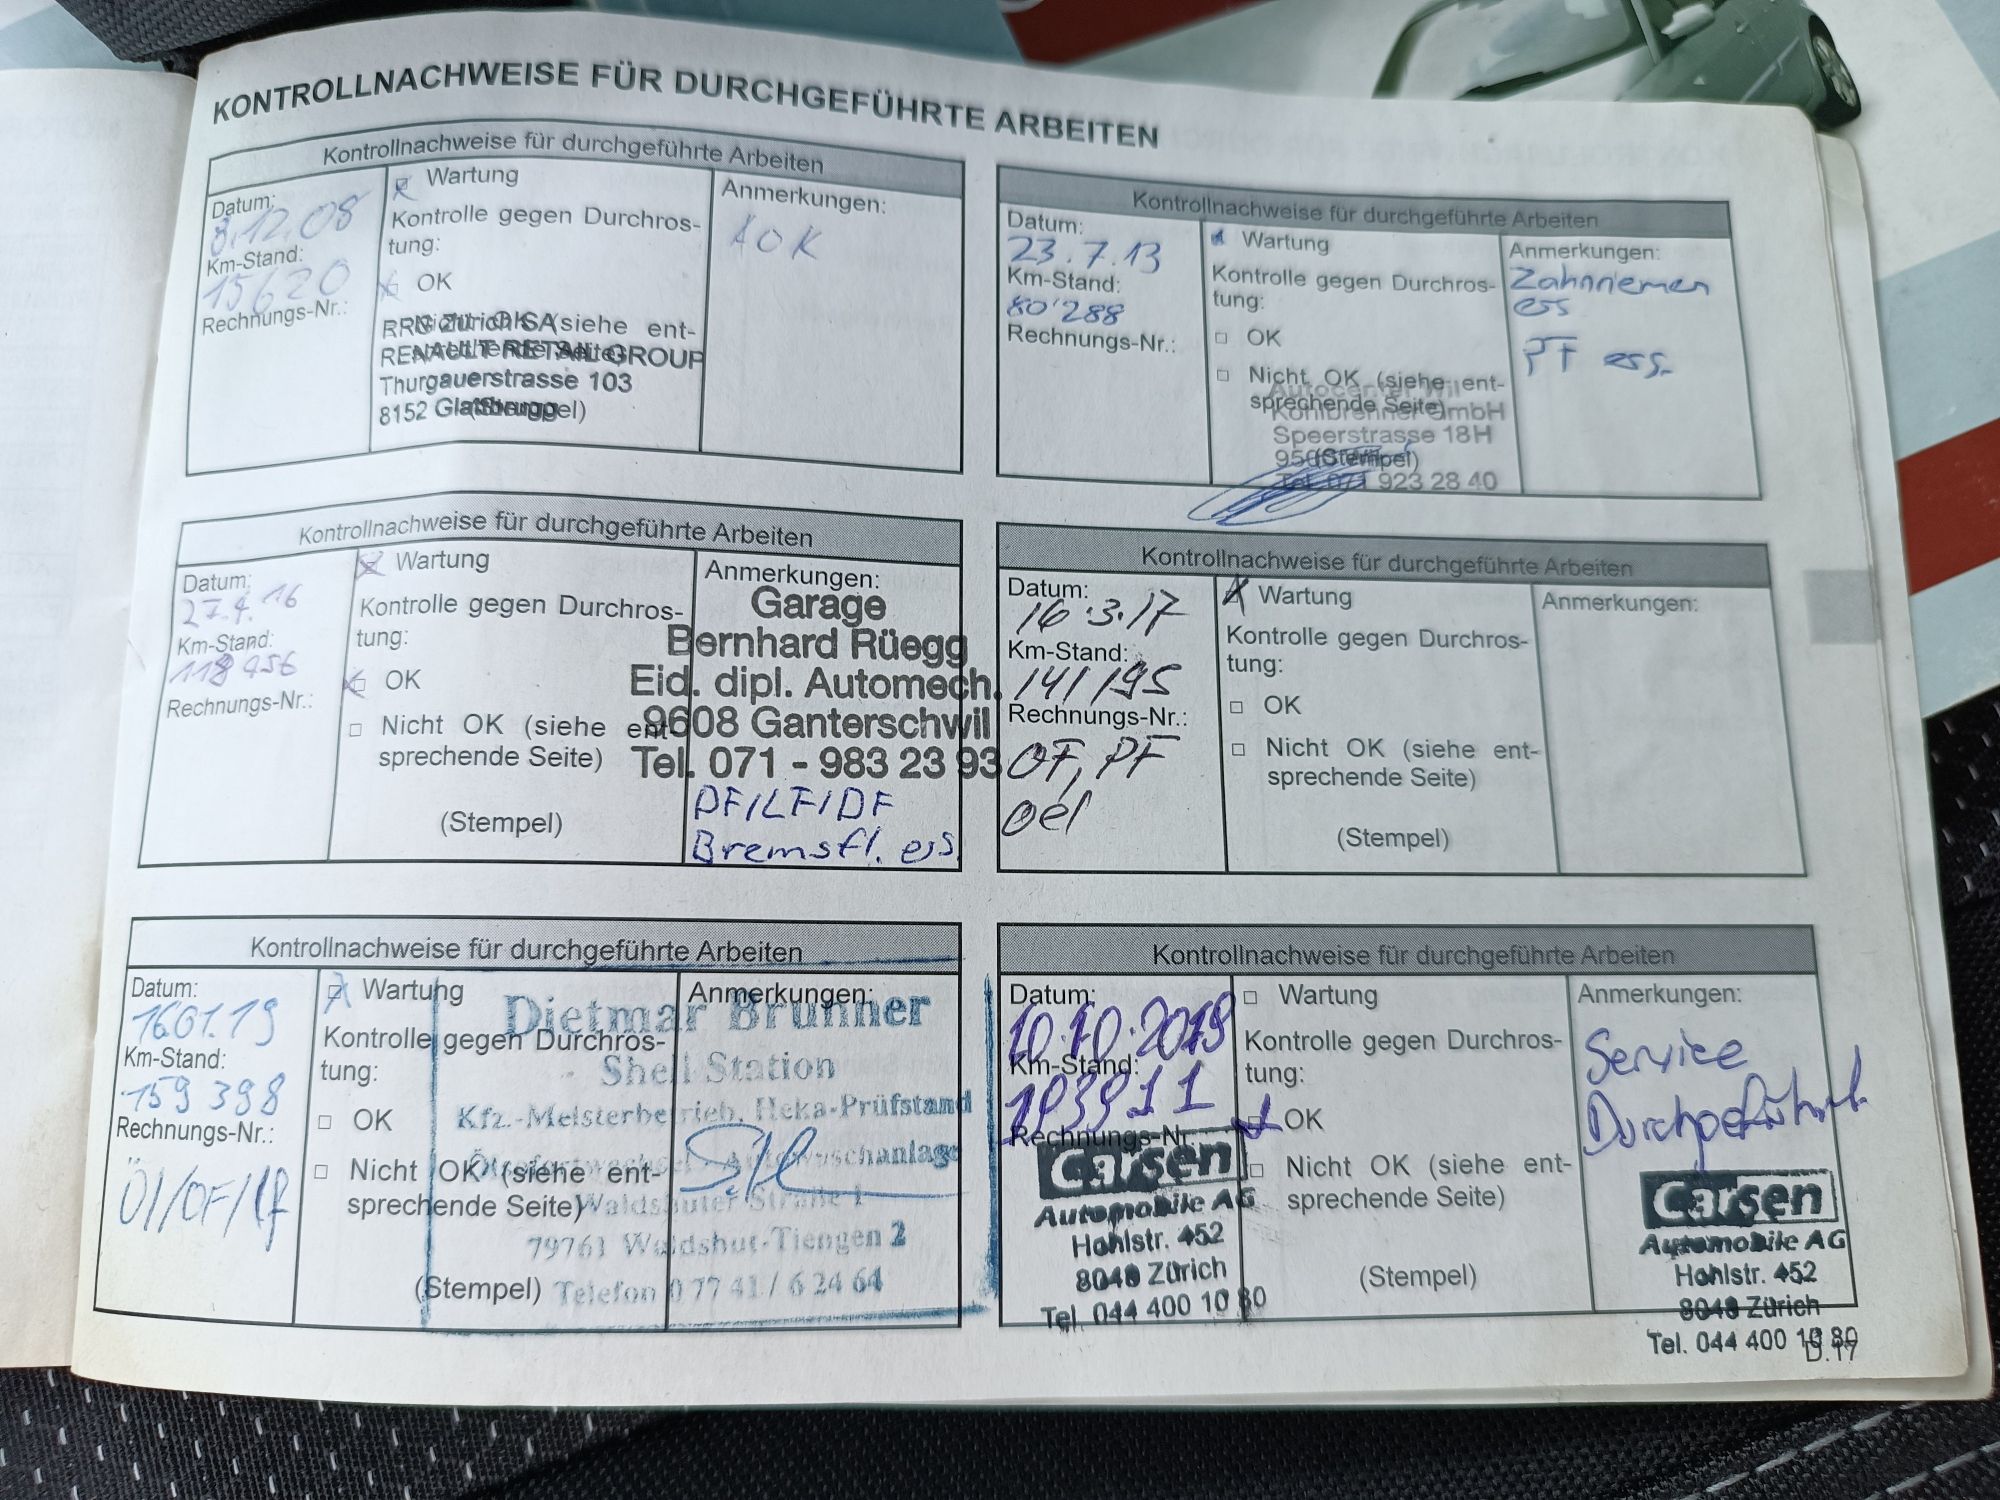 KONTROLLNACHWEISE FÜR DURCHGEFÜHRTE ARBEITEN
Kontrollnachweise für durchgeführte Arbeiten
Datum:
3.12.08
Km-Stand:
15620
Rechnungs-Nr.:
Wartung
Kontrolle gegen Durchros-
tung:
OK
(siehe ent-
RRG Zürich SA
RENAULT RETAIL GROUP
Thurgauerstrasse 103
8152 Glattbrugg
Anmerkungen:
Kontrollnachweise für durchgeführte Arbeiten
Datum:
23.7.13
Km-Stand:
80'288
Rechnungs-Nr.:
Wartung
Kontrolle gegen Durchros-
tung:
OK
Nicht OK (siehe ent-
sprechende Seite)
Autocenter Wil
GmbH
Speerstrasse 18H
(Stempel)
Tel. 071 923 28 40
Anmerkungen:
Zahnriemen
ers
PF ers.
Kontrollnachweise für durchgeführte Arbeiten
Datum:
27.4.16
Km-Stand:
Rechnungs-Nr.:
Wartung
Kontrolle gegen Durchros-
tung:
OK
Nicht OK (siehe ent-
sprechende Seite)
(Stempel)
Anmerkungen:
Garage
Bernhard Rüegg
Eid. dipl. Automech.
9608 Ganterschwil
Tel. 071 - 983 23 93
PF/LF/DF
Bremsfl. ers.
Kontrollnachweise für durchgeführte Arbeiten
Datum:
16.3.17
Km-Stand:
141195
Rechnungs-Nr.:
OF, PF
oel
Wartung
Kontrolle gegen Durchros-
tung:
OK
Nicht OK (siehe ent-
sprechende Seite)
(Stempel)
Anmerkungen:
Kontrollnachweise für durchgeführte Arbeiten
Datum:
16.01.19
Km-Stand:
159 398
Rechnungs-Nr.:
Öl/OF/Lf
Wartung
Kontrolle gegen Durchros-
tung:
OK
Nicht OK (siehe ent-
sprechende Seite)
(Stempel)
Anmerkungen:
Dietmar Brunner
Shell Station
Kfz.-Meisterbetrieb, Heka-Prüfstand
Ölsofortwechsel - Autowaschanlage
Waldshuter Straße 1
79761 Waldshut-Tiengen 2
Telefon 0 77 41 / 6 24 64
Kontrollnachweise für durchgeführte Arbeiten
Datum:
10.10.2019
Km-Stand:
Rechnungs-Nr.
Carsen
Automobile AG
Hohlstr. 452
8048 Zürich
Tel. 044 400 10 80
Wartung
Kontrolle gegen Durchros-
tung:
OK
Nicht OK (siehe ent-
sprechende Seite)
(Stempel)
Anmerkungen:
Service
Durchgeführt
Carsen
Automobile AG
Hohlstr. 452
8048 Zürich
Tel. 044 400 10 80
D.17